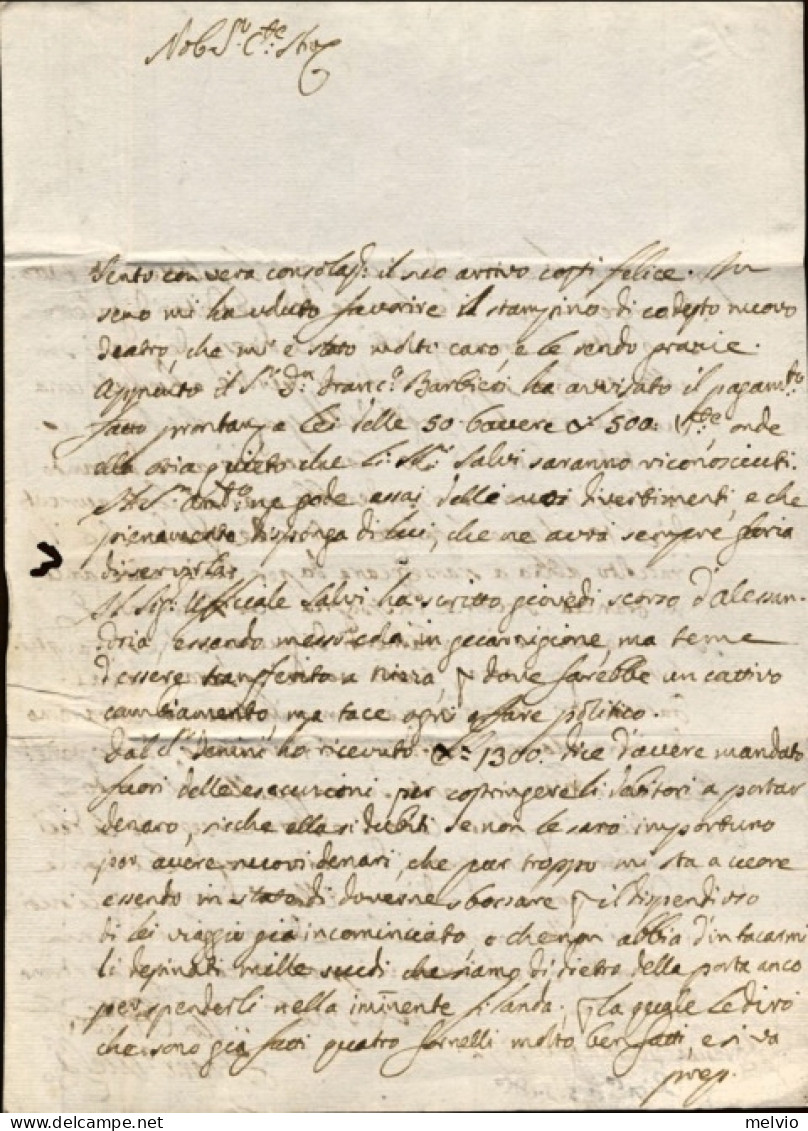 Sento con vera consolaz: il suo arrivo costì felice. In
seno mi ha voluto favorire il stampino di codesto nuovo
Teatro, che mi è stato molto caro, e le rendo grazie.
Appunto il S.r D.n Franc.o Barbieri ha avvisato il pagam.to
fatto a Lei delle 50 bavere 500: onde
ella stia quieto che li SS.ri Salvi saranno riconosciuti.
ne gode assai delli suoi divertimenti, e che
pienamente disponga di lui, che ne avrà sempre gloria
di servirla.
Il Sig.r Ufficiale Salvi ha scritto giovedì scorso d'Alessan-
dria, essendo messo colà in guarnigione, ma teme
d'essere transferito a Nizza, dove sarebbe un cattivo
cambiamento, ma tace ogni affare politico.
Dal S.r Denini ho ricevuto 1300. dice d'avere mandato
fuori delle esecuzioni per costringere li debitori a portar
denaro, sicche ella si dubiti se non le sarò importuno
per avere nuovi denari, che pur troppo mi sta a cuore
essendo in stato di doverne sborsare il dispendioso
di lei viaggio già incominciato, e che non abbia d'intacarmi
li destinati mille scudi che siamo di dietro della porta anco
per spenderli nella iminente filanda, la quale le dirò
che sono già fatti quatro fornelli molto ben fatti, e si va
prep.
melvio